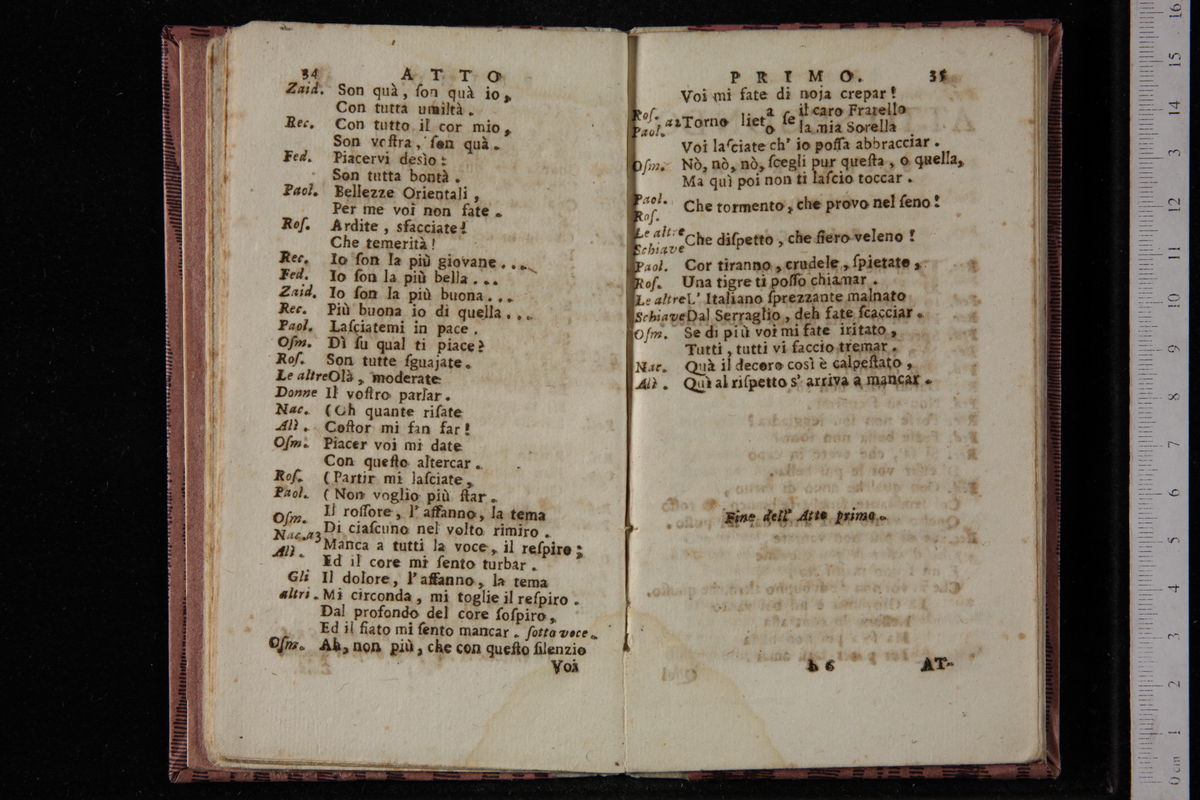 34 ATTO
Zaid. Son quà, ſon quà io,
Con tutta umiltà.
Rec. Con tutto il cor mio,
Son veſtra, ſon quà.
Fed. Piacervi desìo:
Son tutta bontà.
Paol. Bellezze Orientali,
Per me voi non fate.
Roſ. Ardite, sfacciate!
Che temerità!
Rec. Io ſon la più giovane...
Fed. Io ſon la più bella...
Zaid. Io ſon la più buona...
Rec. Più buona io di quella...
Paol. Laſciatemi in pace.
Oſm. Dì ſu qual ti piace?
Roſ. Son tutte ſguajate.
Le altre Olà, moderate
Donne Il voſtro parlar.
Nac. (Oh quante riſate
Alì. Coſtor mi fan far!
Oſm. Piacer voi mi date
Con queſto altercar.
Roſ. (Partir mi laſciate,
Paol. (Non voglio più ſtar.
Oſm. Il roſſore, l'affanno, la tema
Nac.a3 Di ciaſcuno nel volto rimiro.
Alì. Manca a tutti la voce, il reſpiro;
Ed il core mi ſento turbar.
Gli Il dolore, l'affanno, la tema
altri. Mi circonda, mi toglie il reſpiro.
Dal profondo del core ſoſpiro,
Ed il fiato mi ſento mancar. ſotto voce.
Oſm. Ah, non più, che con queſto ſilenzio
Voi
PRIMO. 35
Voi mi fate di noja crepar!
Roſ. a2 Torno lieta ſe il caro Fratello
Paol. o la mia Sorella
Voi laſciate ch' io poſſa abbracciar.
Oſm. Nò, nò, nò, ſcegli pur queſta, o quella,
Ma quì poi non ti laſcio toccar.
Paol. Che tormento, che provo nel ſeno!
Roſ.
Le altre Che diſpetto, che fiero veleno!
Schiave
Paol. Cor tiranno, crudele, ſpietato,
Roſ. Una tigre ti poſſo chiamar.
Le altre L' Italiano ſprezzante malnato
Schiave Dal Serraglio, deh fate ſcacciar.
Oſm. Se di più voi mi fate iritato,
Tutti, tutti vi faccio tremar.
Nac. Quà il decoro così è calpeſtato,
Alì. Quì al riſpetto s' arriva a mancar.
Fine dell' Atto primo.
b 6 AT-
0 cm 1 2 3 4 5 6 7 8 9 10 11 12 13 14 15 16